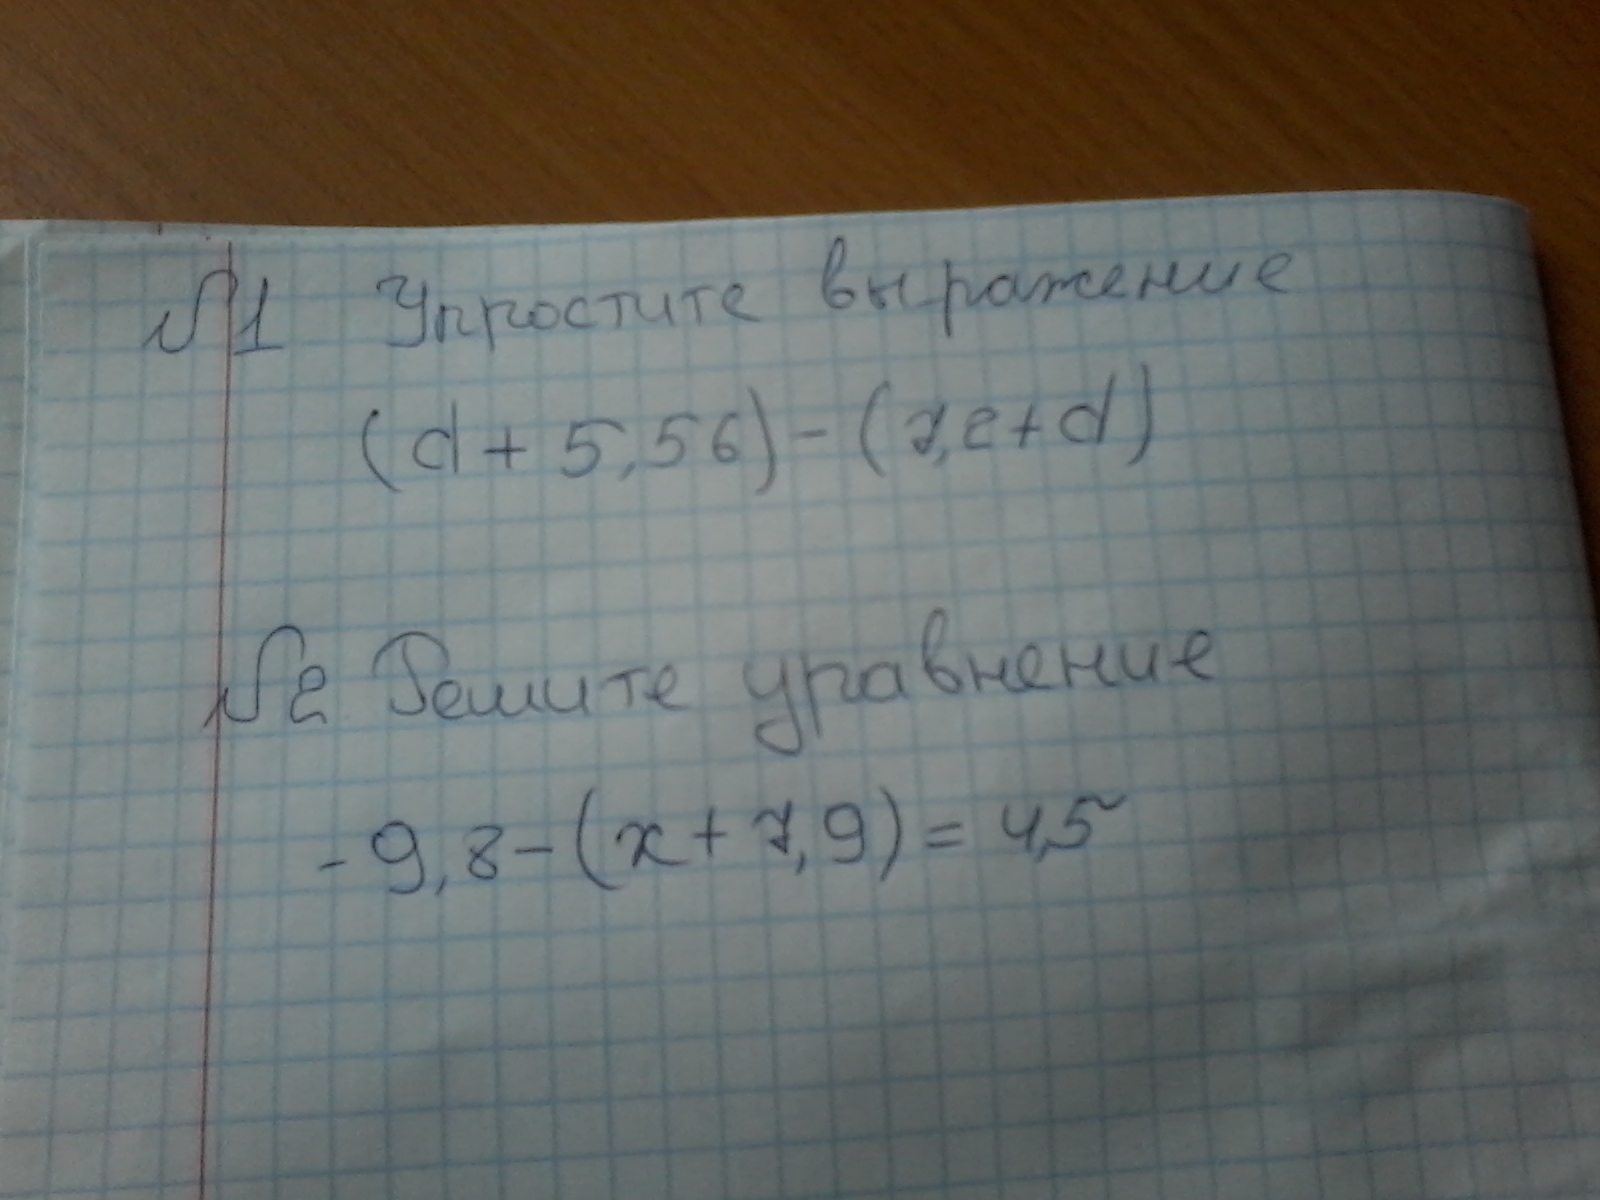 №1 Упростите выражение
(d + 5,56) - (7,2 + d)
№2 Решите уравнение
- 9,8 - (x + 7,9) = 4,5